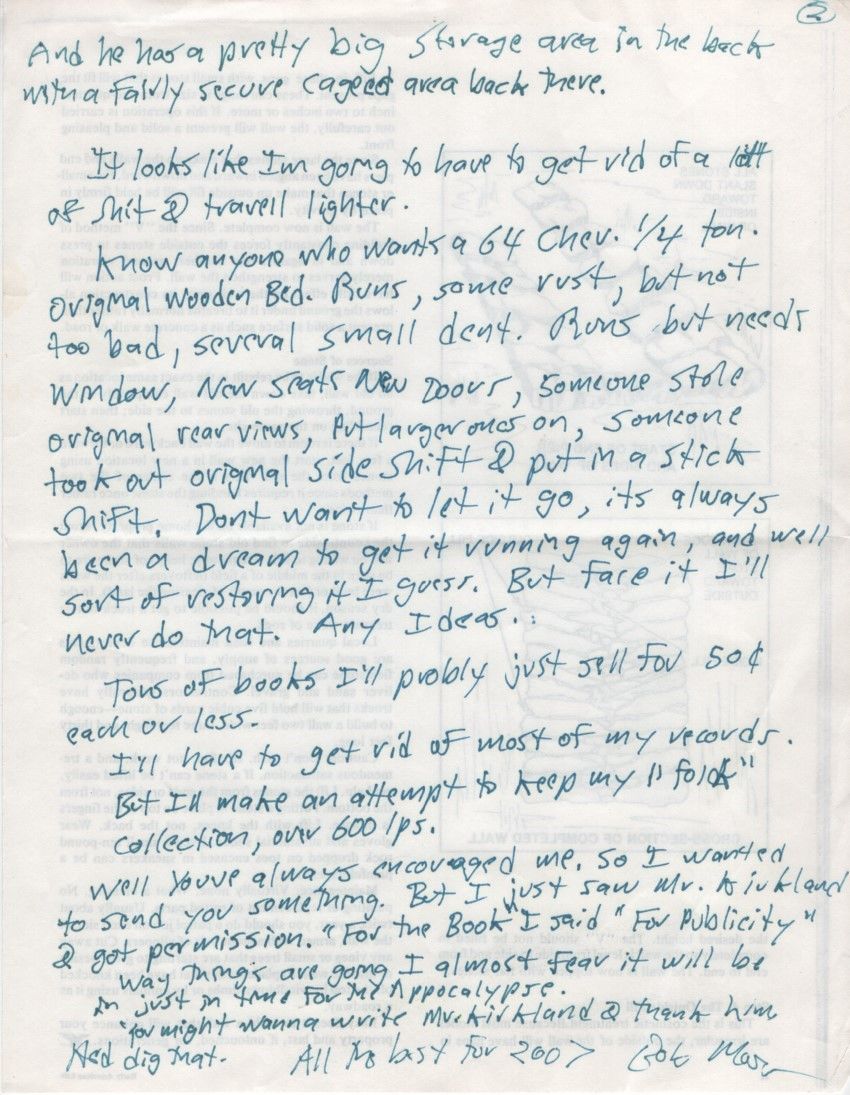 2
And he has a pretty big storage area in the back
with a fairly secure cageed area back there.
It looks like Im going to have to get rid of a lott
of shit & travell lighter.
Know anyone who wants a 64 Chev. 1/4 ton.
Original Wooden Bed. Runs, some rust, but not
too bad, several small dent. Runs but needs
Window, New Seats New Doors, Someone Stole
original rear views, Put larger ones on, Someone
took out original side shift & put in a stick
shift. Dont want to let it go, its always
been a dream to get it running again, and well
sort of restoring it I guess. But face it I'll
never do that. Any Ideas..
Tons of books I'll probly just sell for 50¢
each or less.
I'll have to get rid of most of my records.
But I'll make an attempt to keep my "folk"
collection, over 600 lps.
Well you've always encouraged me. So I wanted
to send you something. But I just saw Mr. Kirkland
& got permission. "For the Book" I said "For Publicity"
Way things are going I almost fear it will be
in just in time For The Appocalypse.
You might wanna write Mr. Kirkland & thank him
Hed dig that. All the best for 2007